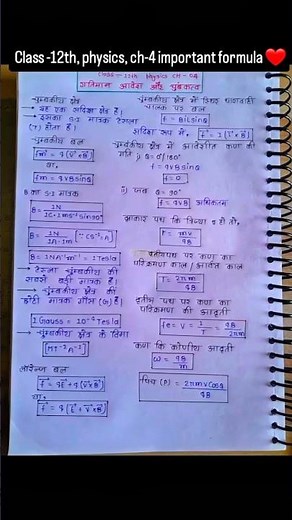 Class -12th, physics, ch-4 important formula ❤️
Class - 12th Physics CH - 04
गतिमान आवेश और चुम्बकत्व
चुम्बकीय क्षेत्र
→ यह एक सदिश क्षेत्र है।
→ इसका S.I मात्रक टेसला
(T) होता है।
चुम्बकीय बल
fm = q(V×B)
या,
fm = qVBsinθ
B का S.I मात्रक
B = 1N / 1C·1ms⁻¹sin90°
B = 1N / 1A·1m (∵ CS⁻¹=A)
B = 1NA⁻¹m⁻¹ = 1Tesla
→ टेसला चुम्बकीय की
सबसे बड़ी मात्रक है।
→ चुम्बकीय क्षेत्र की
छोटी मात्रक गौस (G) है।
1 Gauss = 10⁻⁴ Tesla
→ चुम्बकीय क्षेत्र के विमा
[MT⁻²A⁻¹]
लॉरेन्ज बल
f = qE + q(V×B)
या,
f = q(E + V×B)
चुम्बकीय क्षेत्र में स्थित धारावाही
चालक पर बल
f = BiLsinθ
सदिश रूप में,
चुम्बकीय क्षेत्र में आवेशित कण की
गति
i) θ = 0°/180°
f = qVBsinθ
f = 0
ii) जब θ = 90°
f = qVB अधिकतम
r = mv / qB
वृतीय पथ पर कण का
परिक्रमण काल / आवर्त काल
T = 2πm / qB
वृतीय पथ पर कण का
परिक्रमण की आवृती
fc = ν = 1/T = qB / 2πm
कण कि कोणीय आवृती
ω = qB / m
पिच (P) = 2πmvcosθ / qB